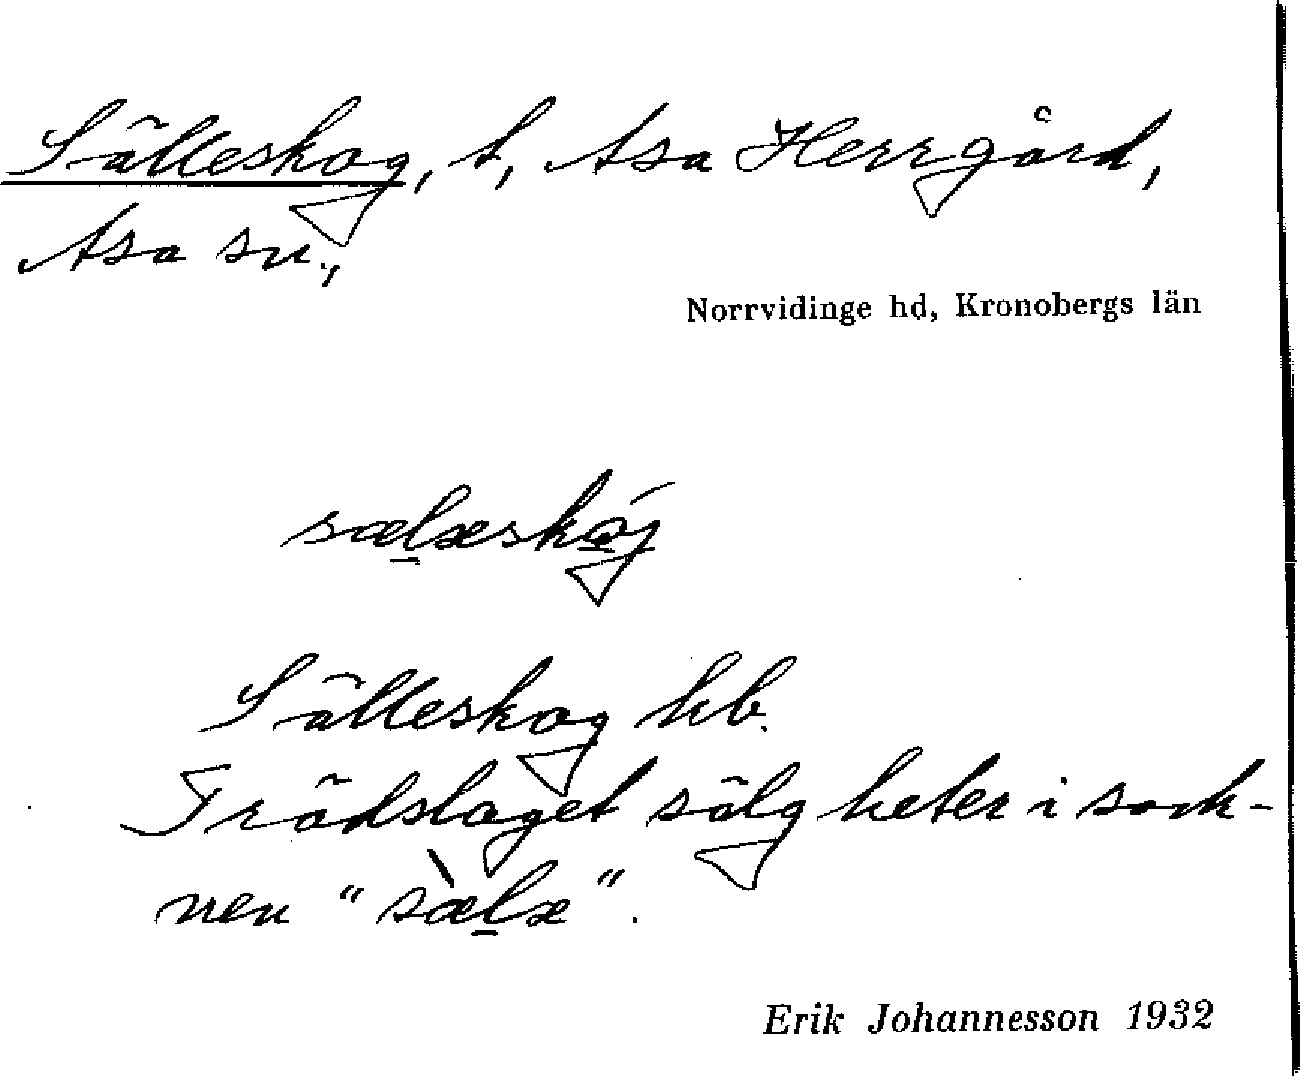 Sälleskog, t, Asa Herrgård,
Asa sn.,
Norrvidinge hd, Kronobergs län
sælæskǫj
Sälleskog hb.
Trädslaget sälg heter i sock-
nen "sælæ".
Erik Johannesson 1932